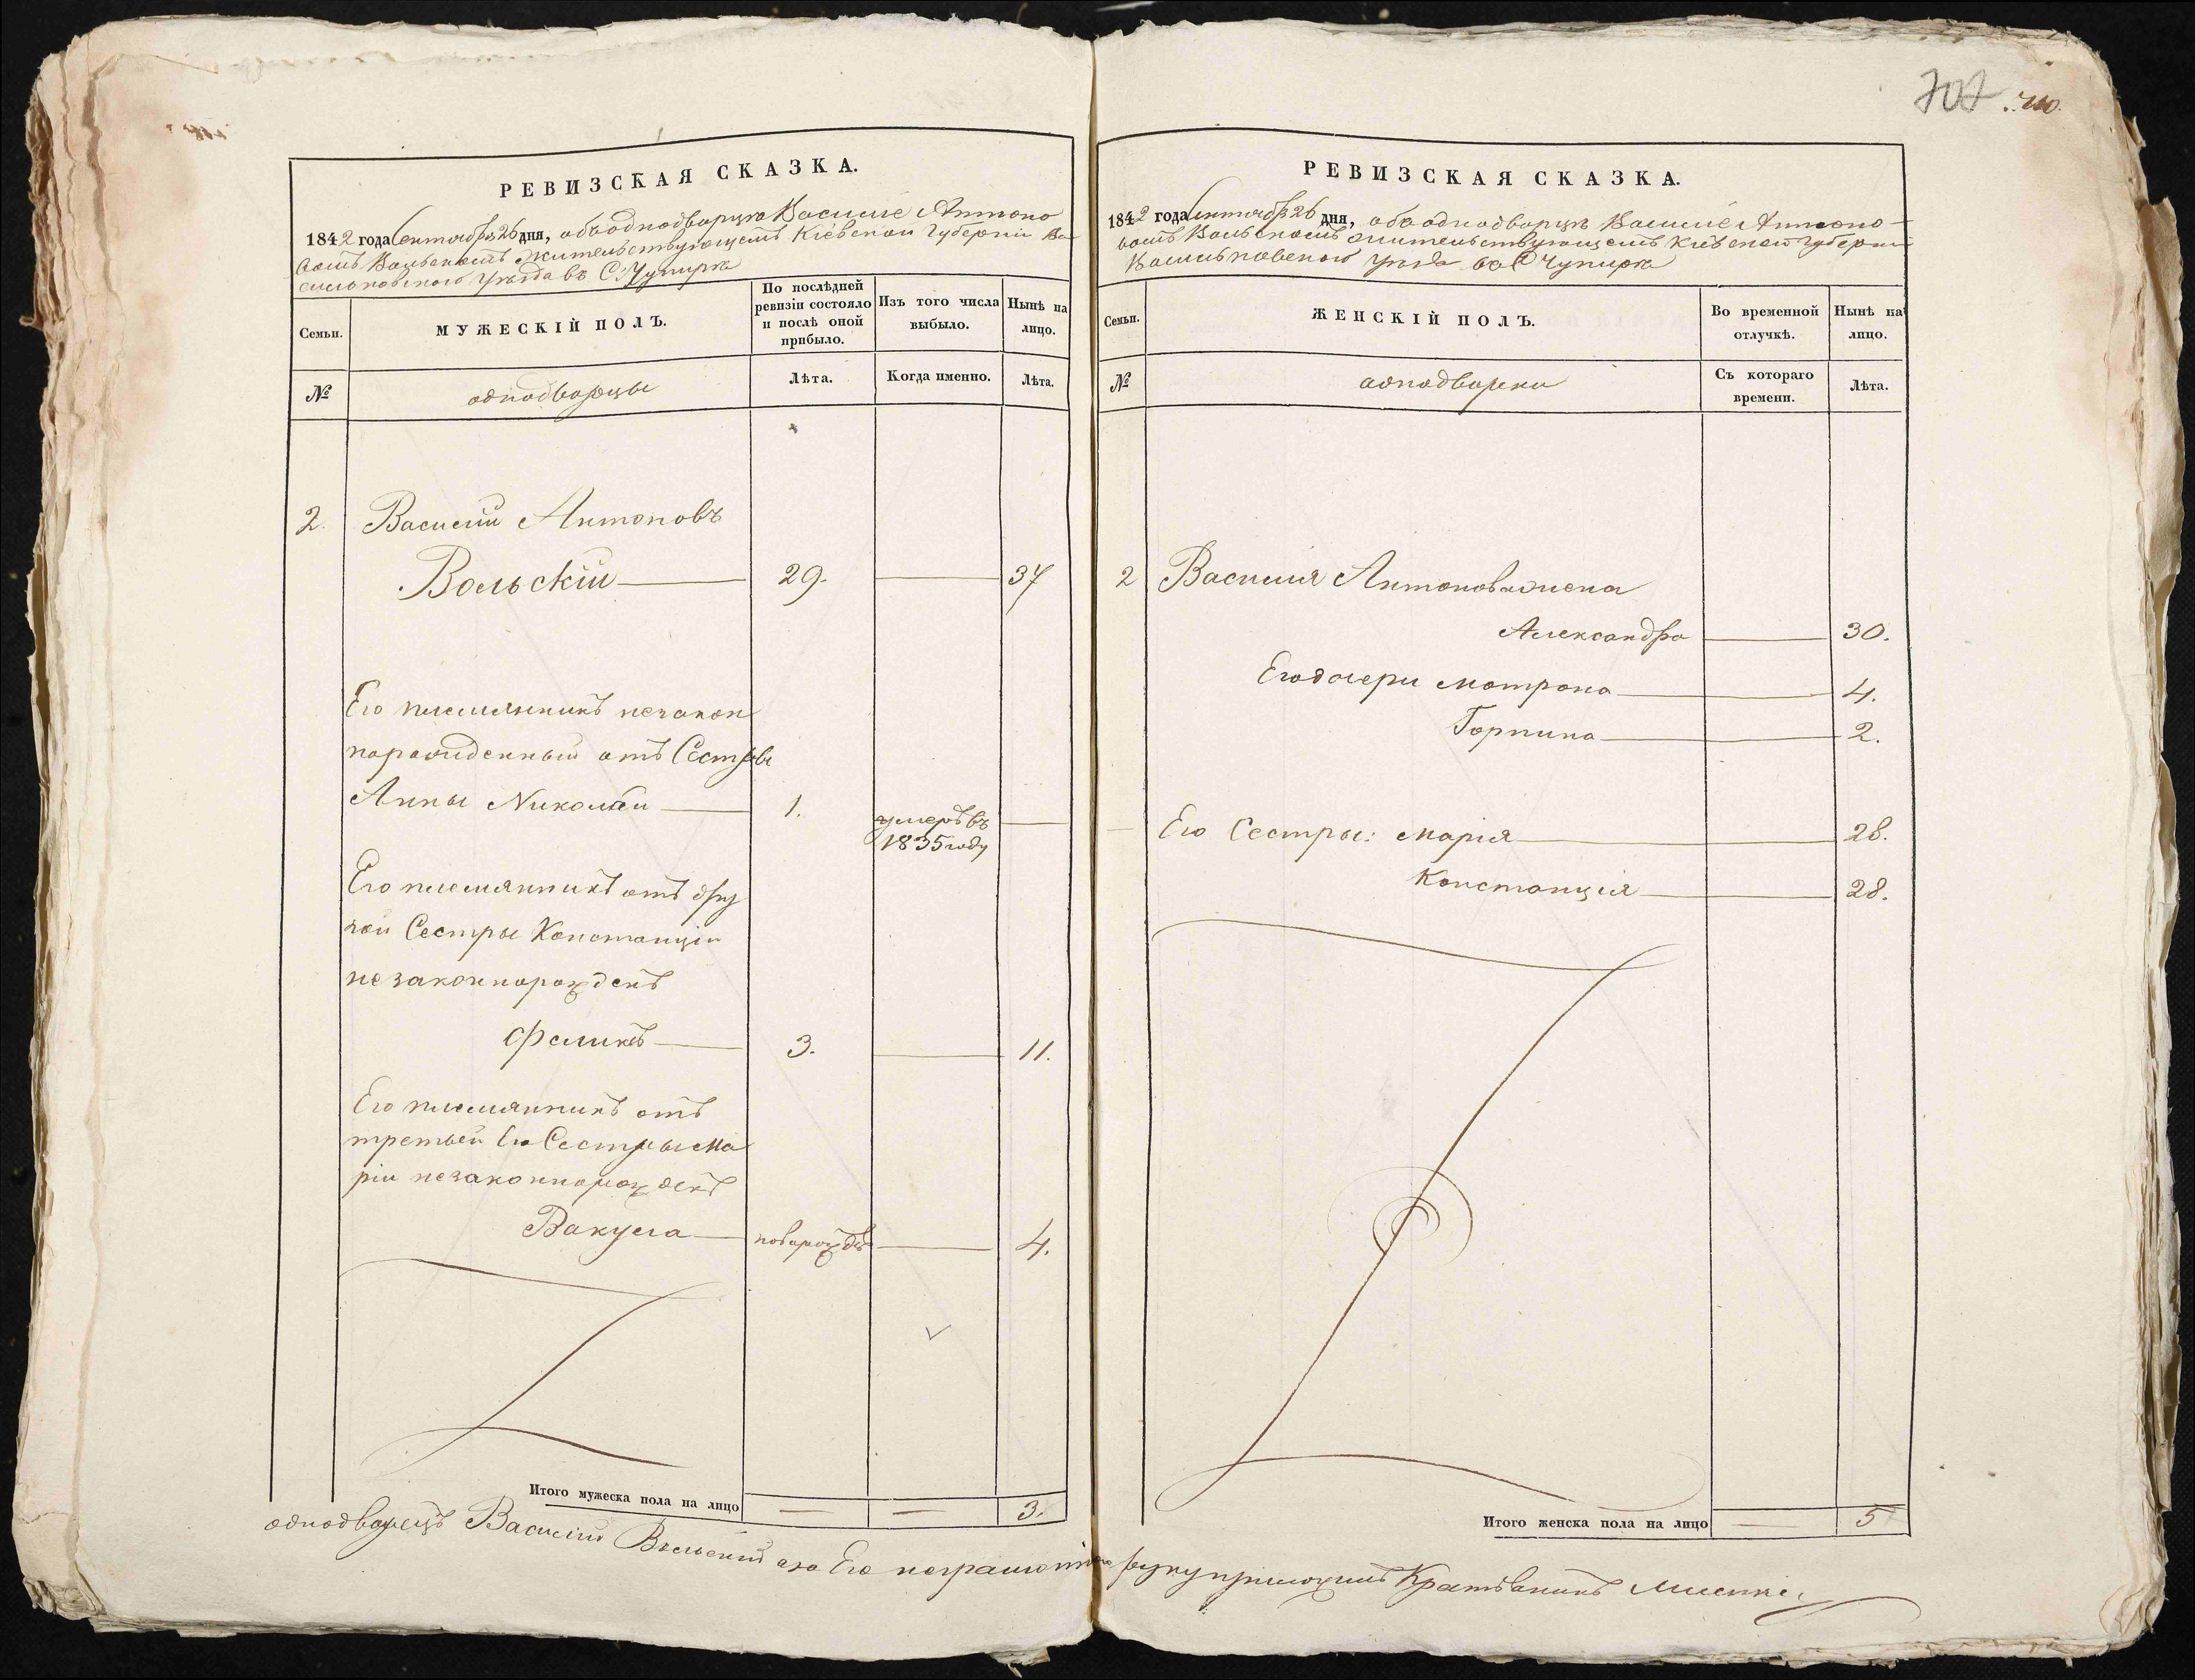 707
РЕВИЗСКАЯ СКАЗКА.
1842 года Сентября 26 дня, объ однодворцѣ Василіе Антоно
вомъ Вольскомъ жительствующемъ Кіевской Губерніи Ва
сильковскаго Уѣзда въ С: Чупирка
Семьи.
МУЖЕСКІЙ ПОЛЪ.
По послѣдней ревизіи состояло и послѣ оной прибыло.
Изъ того числа выбыло.
Нынѣ на лицо.
№
однодворцы
Лѣта.
Когда именно.
Лѣта.
2. Василій Антоновъ
Вольскій 29. 37
Его племянникъ незакон
норожденный отъ Сестры
Анны Николай 1. умеръ въ
1835 году
Его племянникъ отъ дру
гой Сестры Констанціи
незаконнорожденъ
Феликсъ 3. 11.
Его племянникъ отъ
третьей Его Сестры Ма
ріи незаконнорожденъ
Вакула новорожде 4.
Итого мужеска пола на лицо — — 3.
РЕВИЗСКАЯ СКАЗКА.
1842 года Сентября 26 дня, объ однодворцѣ Василіе Антоно-
вомъ Вольскомъ жительствующемъ Кіевской Губерніи
Васильковскаго Уѣзда въ С Чупирка
Семьи.
ЖЕНСКІЙ ПОЛЪ.
Во временной отлучкѣ.
Нынѣ на лицо.
№
однодворки
Съ котораго времени.
Лѣта.
2 Василія Антонова жена
Александра 30.
Его дочери Мотрона 4.
Горпина 2.
Его Сестры: Марія 28.
Констанція 28.
Итого женска пола на лицо — 5
однодворецъ Василій Вольскій а за Его неграмотного руку приложилъ